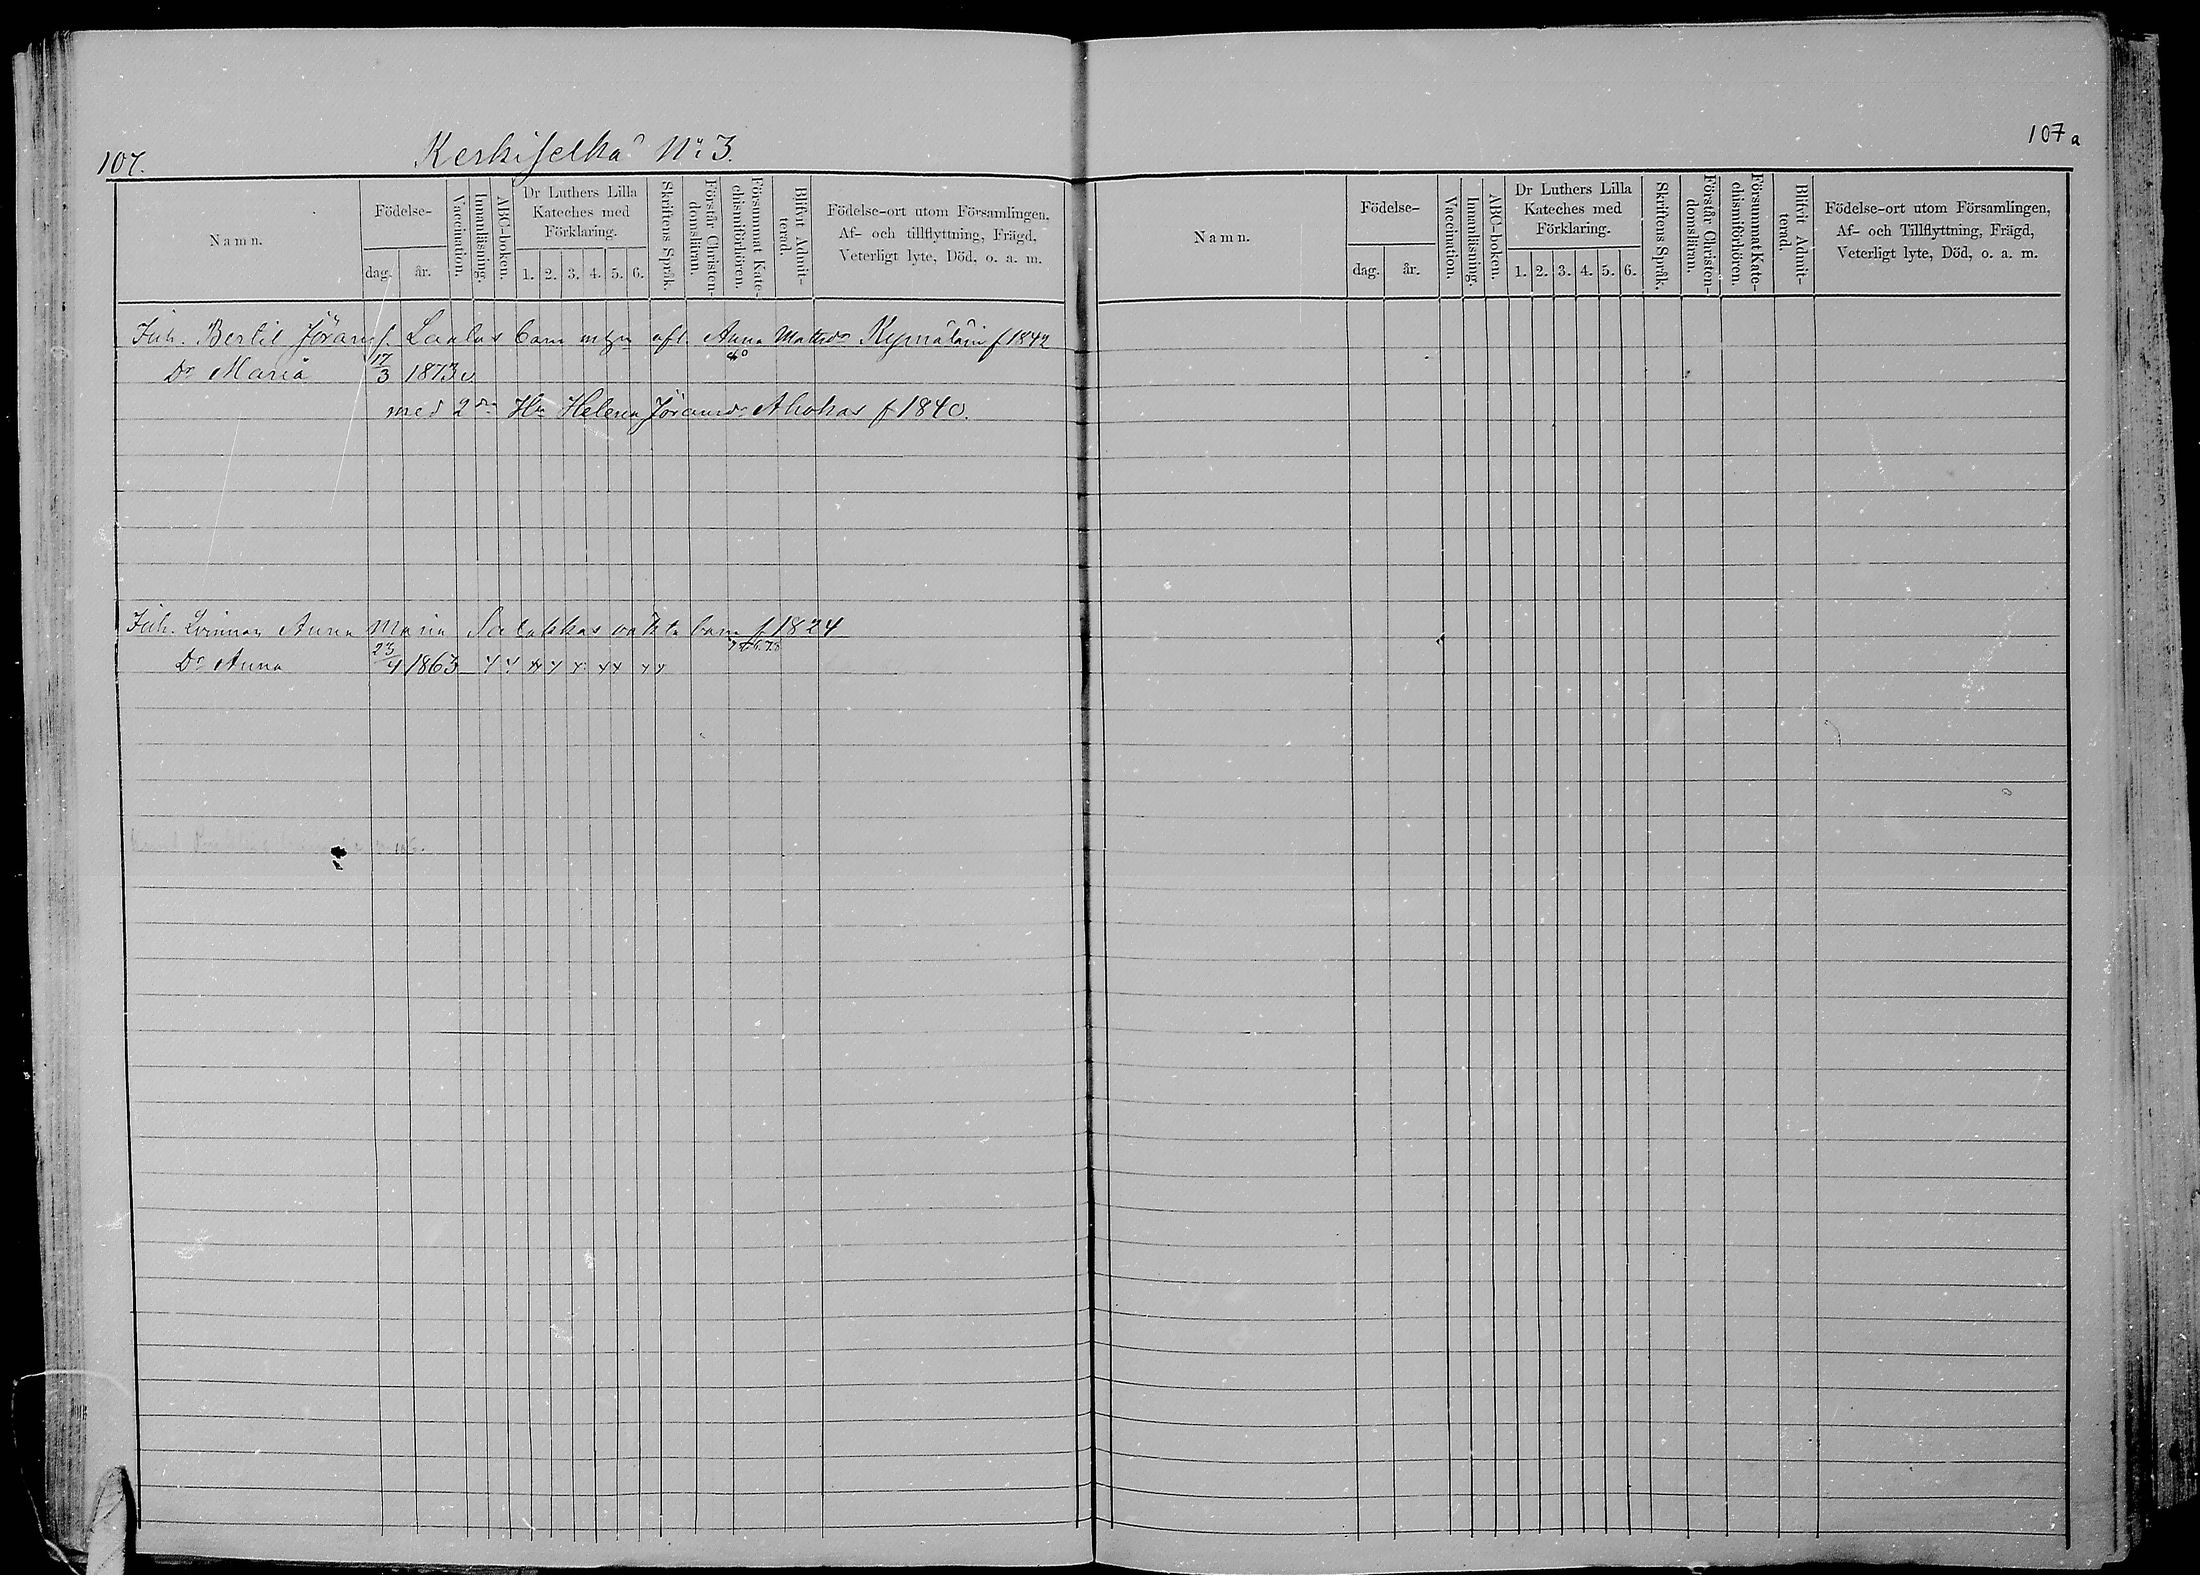 107.
Keskiselkä No 3.
107a
Namn.
Födelse-
dag. år.
Vaccination.
Innanläsning.
ABC-boken.
Dr Luthers Lilla Kateches med Förklaring.
1. 2. 3. 4. 5. 6.
Skriftens Språk.
Förstår Christendomsläran.
Försummat Katechismiförhören.
Blifvit Admitterad.
Födelse-ort utom Församlingen,
Af- och tillflyttning, Frägd,
Veterligt lyte, Död, o. a. m.
Inh. Bertil Jöranss. Laalus barn m. afl. Anna Mattsdr Kymäläin f 1842
Dr Maria 17/3 1873 v.
med 2dra Hu Helena Jöransdr Ahokas f 1840.
Inh. Anna Maria Salakkas oäkta barn f 1824
Dr Anna 23/4 1863
Namn.
Födelse-
dag. år.
Vaccination.
Innanläsning.
ABC-boken.
Dr Luthers Lilla Kateches med Förklaring.
1. 2. 3. 4. 5. 6.
Skriftens Språk.
Förstår Christendomsläran.
Försummat Katechismiförhören.
Blifvit Admitterad.
Födelse-ort utom Församlingen,
Af- och Tillflyttning, Frägd,
Veterligt lyte, Död, o. a. m.